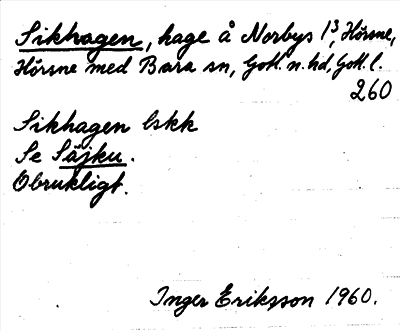 Sikhagen, hage å Norbys 1³, Hörsne,
Hörsne med Bara sn, Gotl. n. hd, Gotl. l.
260
Sikhagen Eskk
Se Säjku.
Obrukligt.
Inger Eriksson 1960.